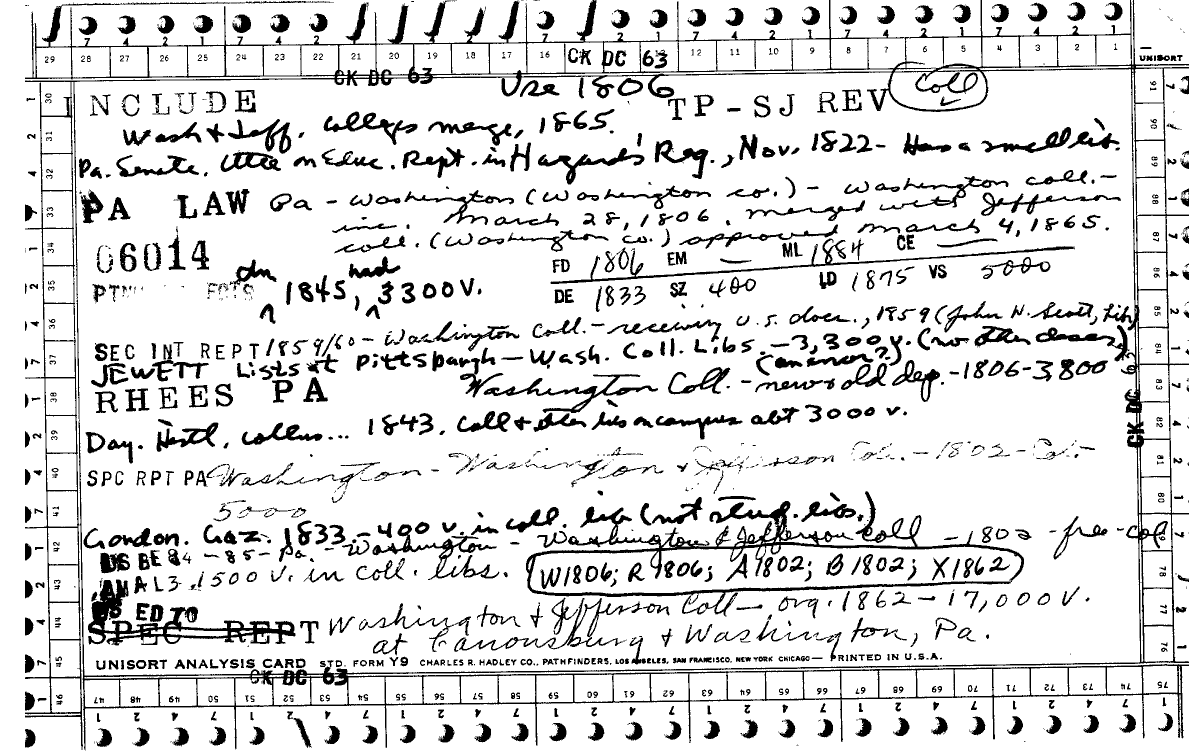 7 4 2 1 7 4 2 1 7 4 2 1 7 4 2 1 7 4 2 1
29 28 27 26 25 24 23 22 21 20 19 18 17 16 CK DC 63 12 11 10 9 8 7 6 5 4 3 2 1 UNISORT
CK DC 63 Use 1806
INCLUDE TP-SJ REV Coll
Wash & Jeff. Colleges merge, 1865.
Pa. Senate. Cttee on Educ. Rept. in Hazard's Reg., Nov. 1822- Has a small lib.
PA LAW Pa - Washington (Washington co.) - Washington coll. -
inc. March 28, 1806. merged with Jefferson
coll. (Washington co.) approved March 4, 1865.
06014
FD 1806 EM — ML 1884 CE —
DE 1833 SZ 400 LD 1875 VS 5000
1845, had 3300 V.
SEC INT REPT 1859/60 - Washington Coll. - receiving U.S. docs., 1859 (John N. Scott, Lib)
JEWETT Lists at Pittsburgh - Wash. Coll. Libs - 3,300 v. (no other descr)
(an error?)
RHEES PA Washington Coll. - news old dep. - 1806 - 3,800
CK DC 63
Day. Histl. collns... 1843. Coll & other libs on campus abt 3000 v.
SPC RPT PA Washington - Washington & Jefferson Coll. - 1802 - Col -
5000
Gordon. Gaz. 1833. - 400 v. in coll. lib (not stud. libs.)
US BE 84 - 85 - Pa. - Washington - Washington & Jefferson coll - 1802 - free - col
AM AL 3. 1500 V. in coll. libs. W1806; R 1806; A1802; B1802; X1862
US ED 70
SPEC REPT Washington & Jefferson Coll - org. 1862 - 17,000 V.
at Canonsburg & Washington, Pa.
UNISORT ANALYSIS CARD STD. FORM Y9 CHARLES R. HADLEY CO., PATHFINDERS, LOS ANGELES, SAN FRANCISCO, NEW YORK CHICAGO — PRINTED IN U.S.A.
CK DC 63
47 48 49 50 51 52 53 54 55 56 57 58 59 60 61 62 63 64 65 66 67 68 69 70 71 72 73 74 75
1 2 4 7 1 2 4 7 1 2 4 7 1 2 4 7 1 2 4 7 1 2 4 7 1 2 4 7